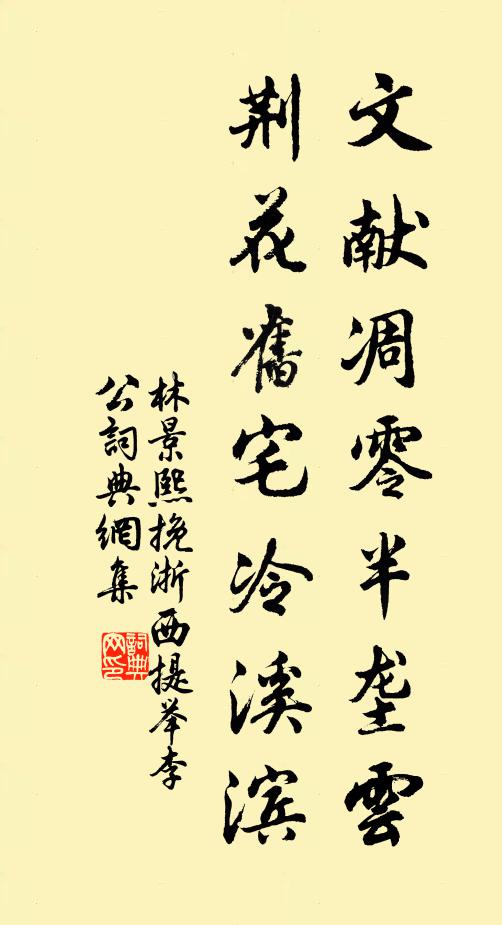 文献凋零半垄雲
荆花舊宅冷溪滨
林景熙挽浙西提举李
公詞典網集
詞典网印